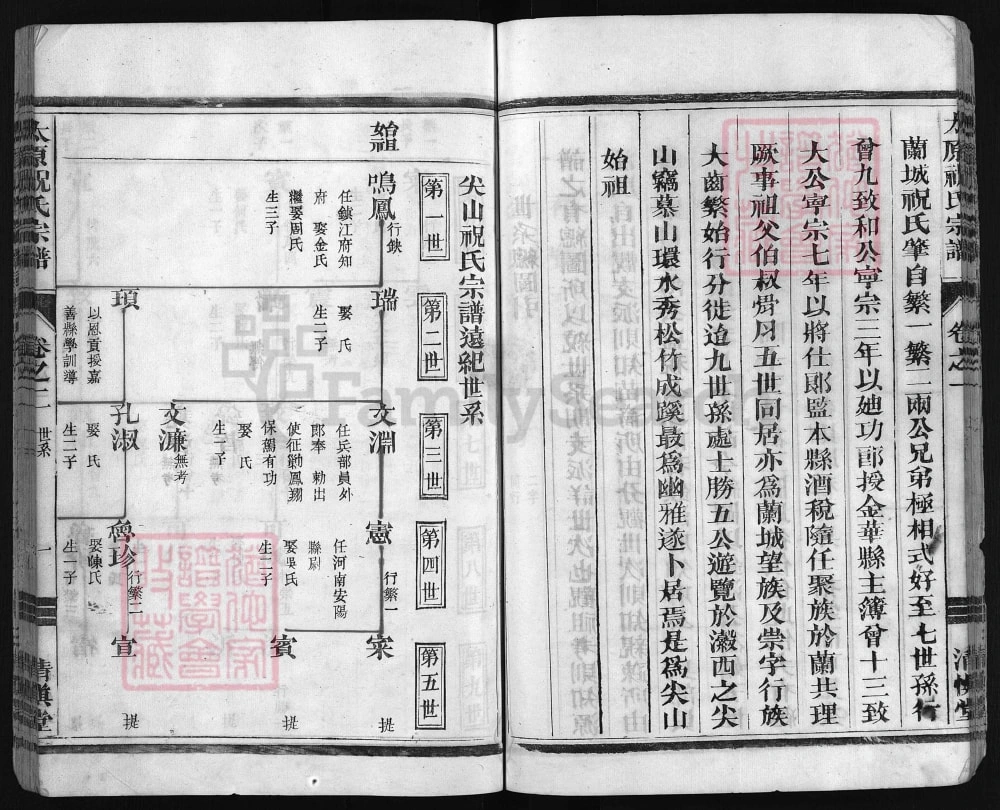 太原祝氏宗譜
卷之一
清慎堂
蘭城祝氏肇自繁一繁二兩公兄弟極相式好至七世孫行
曾九致和公寧宗三年以廸功郎授金華縣主簿曾十三致
大公寧宗七年以將仕郞監本縣酒稅隨任聚族於蘭共理
厥事祖父伯叔胥月五世同居亦為蘭城望族及崇字行族
大齒繁始行分徙迨九世孫處士勝五公遊覽於瀫西之尖
山竊慕山環水秀松竹成蹊最為幽雅遂卜居焉是為尖山
始祖
尖山祝氏宗譜遠紀世系
第一世
第二世
第三世
第四世
第五世
始祖
鳴鳳 行鍈
任鎮江府知
府 娶金氏
繼娶周氏
生三子
瑞
娶 氏
生二子
文淵
任兵部員外
郎奉 勅出
使征勦鳳翔
保駕有功
娶 氏
生二子
憲 行繁一
任河南安陽
縣尉
娶吳氏
生二子
寀 提
賓 提
文濂 無考
頊
以恩貢授嘉
善縣學訓導
孔淑
娶 氏
生二子
魯珍 行繁二
娶陳氏
生一子
宣 提
太原祝氏宗譜
卷之二
世系
一
清慎堂
FamilySearch